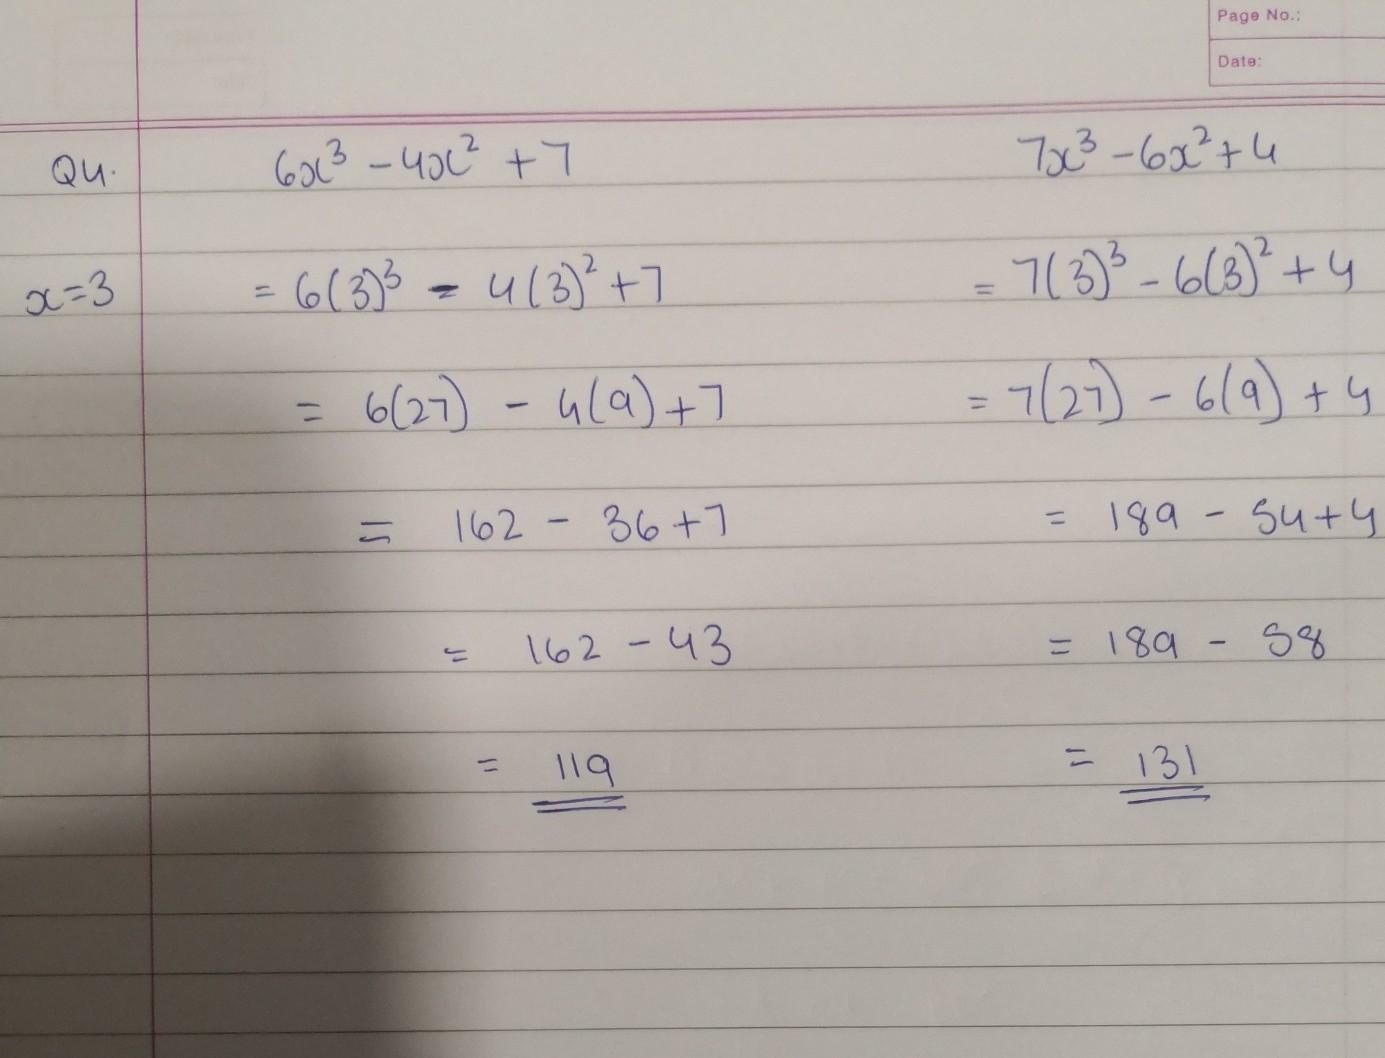 Page No.:
Date:
Q4. 6x³ - 4x² + 7 7x³ - 6x² + 4
x=3 = 6(3)³ - 4(3)² + 7 = 7(3)³ - 6(3)² + 4
= 6(27) - 4(9) + 7 = 7(27) - 6(9) + 4
= 162 - 36 + 7 = 189 - 54 + 4
= 162 - 43 = 189 - 58
= 119 = 131